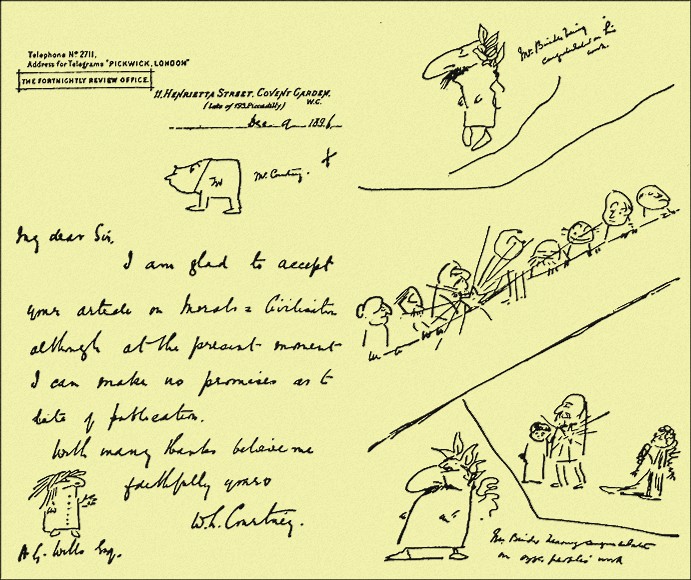 Telephone Nº 2711.
Address for Telegrams "PICKWICK, LONDON"
THE FORTNIGHTLY REVIEW OFFICE.
11, HENRIETTA STREET, COVENT GARDEN,
W.C.
(late of 193, Piccadilly)
Dec 9 1896
Mr. Courtney.
My dear Sir,
I am glad to accept
your article on Morals & Civilisation
although at the present moment
I can make no promises as to
date of publication.
With many thanks believe me
faithfully yours
W. L. Courtney.
H. G. Wells Esq.
Mr. Binder being
congratulated on his
work.
Mr. Binder hearing congratulations
on other people's work